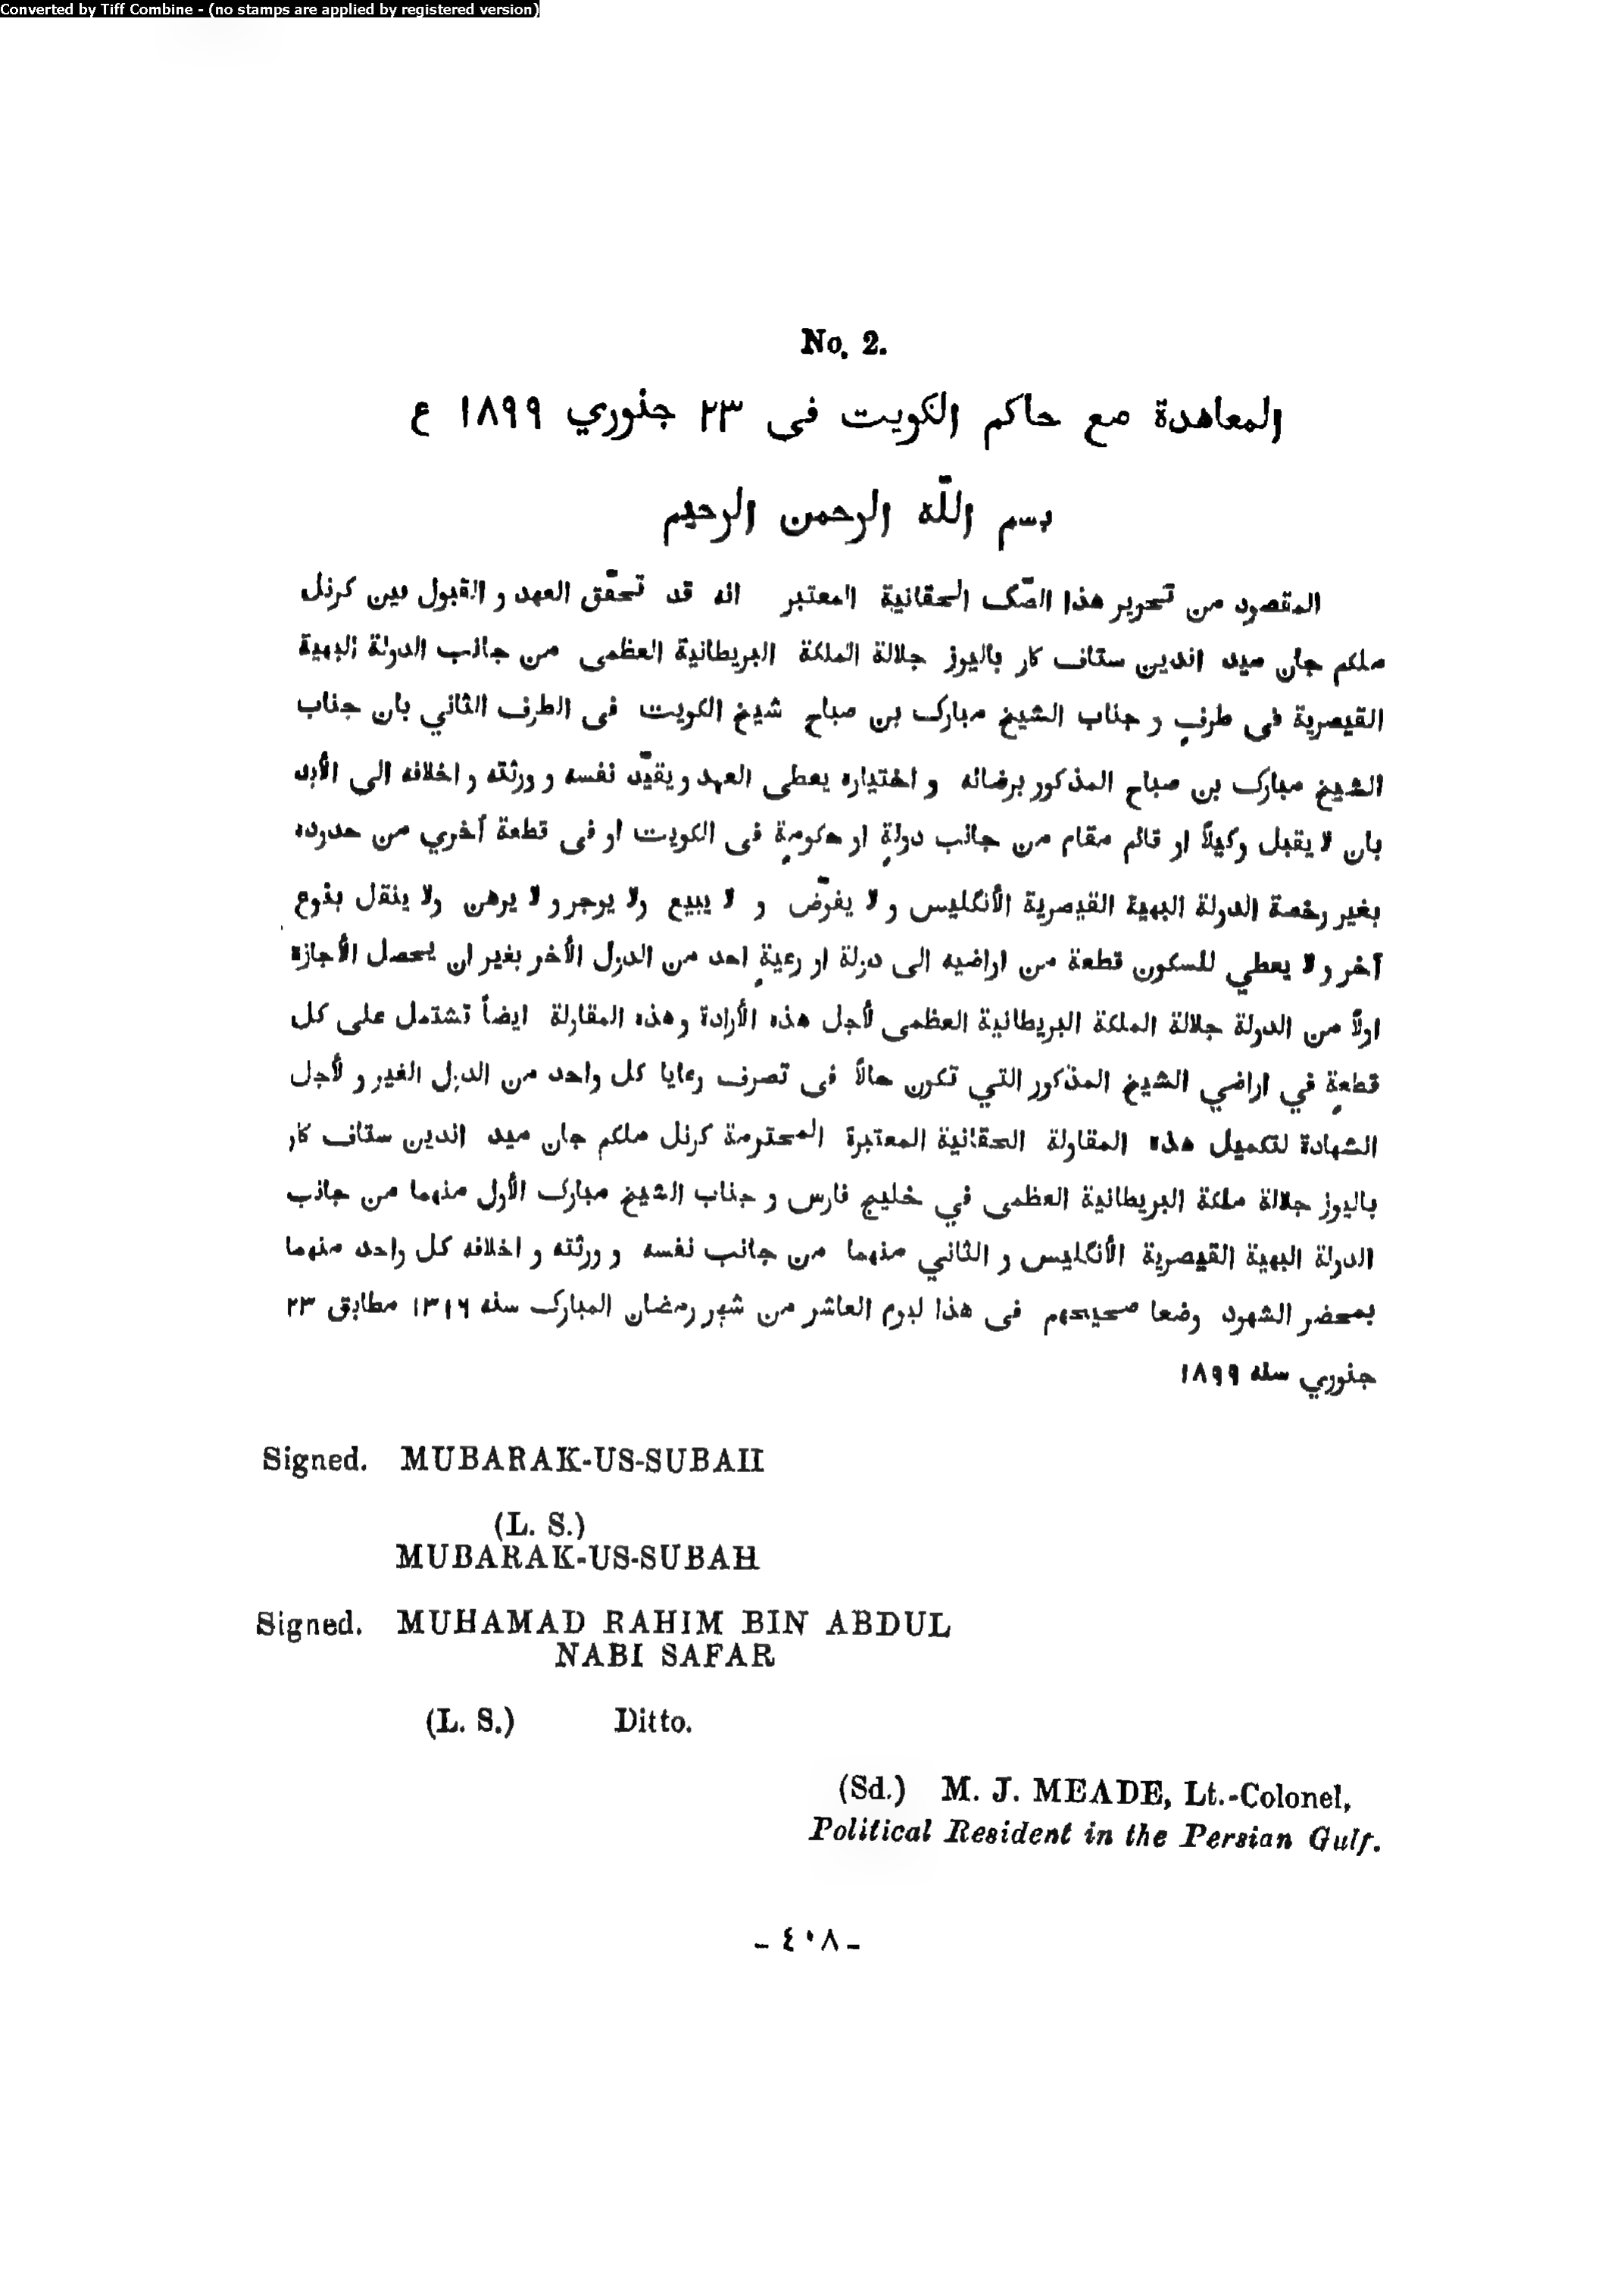 Converted by Tiff Combine - (no stamps are applied by registered version)
No. 2.
المعاهدة مع حاكم الكويت فى ٢٣ جنوري ١٨٩٩ ع
بسم اللّه الرحمن الرحيم
المقصود من تحرير هذا الصّك الحقانية المعتبر انه قد تحقّق العهد و القبول بين كرنل
ملكم جان ميد اندين ستاف كار باليوز جلالة الملكة البريطانية العظمى من جانب الدولة البهية
القيصرية فى طرفٍ و جناب الشيخ مبارك بن صباح شيخ الكويت فى الطرف الثاني بان جناب
الشيخ مبارك بن صباح المذكور برضائه و اختياره يعطى العهد و يقيّد نفسه و ورثته و اخلافه الى الأبد
بان لا يقبل وكيلاً او قائم مقام من جانب دولةٍ او حكومةٍ فى الكويت او فى قطعة آخري من حدوده
بغير رخصة الدولة البهية القيصرية الأنكليس و لا يفوّض و لا يبيع ولا يوجر و لا يرهن ولا ينقل بنوع
آخر و لا يعطي للسكون قطعة من اراضيه الى دولة او رعيةٍ احد من الدول الأخر بغير ان يحصل الأجازة
اولاً من الدولة جلالة الملكة البريطانية العظمى لأجل هذه الأرادة و هذه المقاولة ايضاً تشتمل على كل
قطعةٍ في اراضي الشيخ المذكور التي تكون حالاً فى تصرف رعايا كل واحد من الدول الغير و لأجل
الشهادة لتكميل هذه المقاولة الحقانية المعتبرة المحترمة كرنل ملكم جان ميد اندين ستاف كار
باليوز جلالة ملكة البريطانية العظمى في خليج فارس و جناب الشيخ مبارك الأول منهما من جانب
الدولة البهية القيصرية الأنكليس و الثاني منهما من جانب نفسه و ورثته و اخلافه كل واحد منهما
بمحضر الشهود وضعا صحيحهم فى هذا ليوم العاشر من شهر رمضان المبارك سنه ١٣١٦ مطابق ٢٣
جنوري سنه ١٨٩٩
Signed. MUBARAK-US-SUBAH
(L. S.)
MUBARAK-US-SUBAH
Signed. MUHAMAD RAHIM BIN ABDUL
NABI SAFAR
(L. S.) Ditto.
(Sd.) M. J. MEADE, Lt.-Colonel,
Political Resident in the Persian Gulf.
- ٤٠٨ -